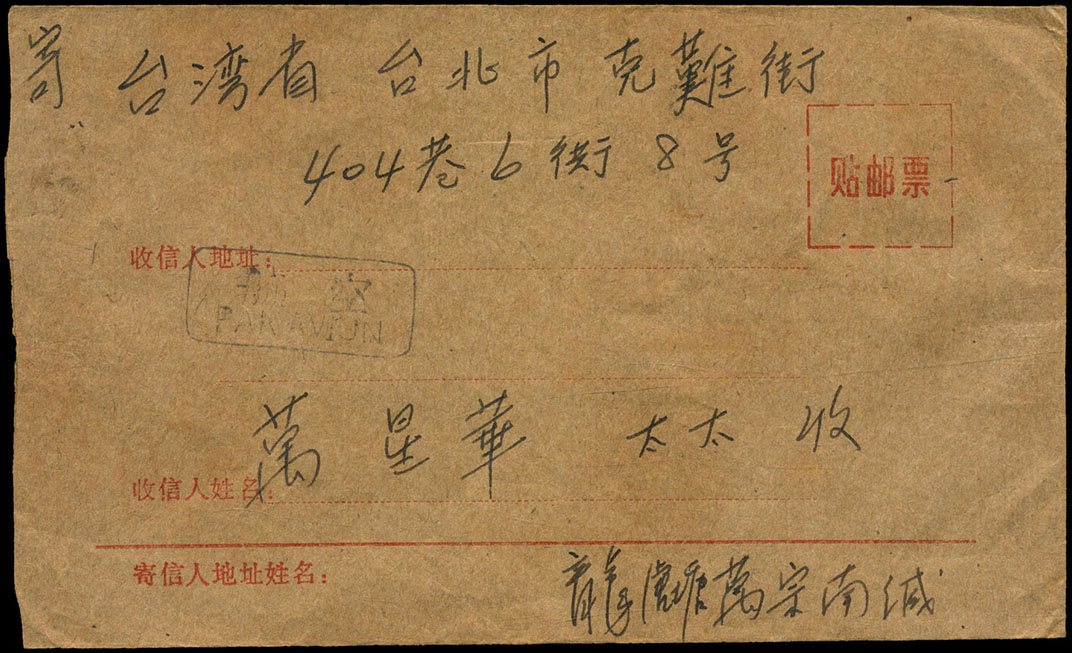 寄 台湾省 台北市 克難街
404巷6街8号
贴邮票
收信人地址:
航空
PAR AVION
萬星華 太太 收
收信人姓名:
寄信人地址姓名:
龍 萬宗南缄